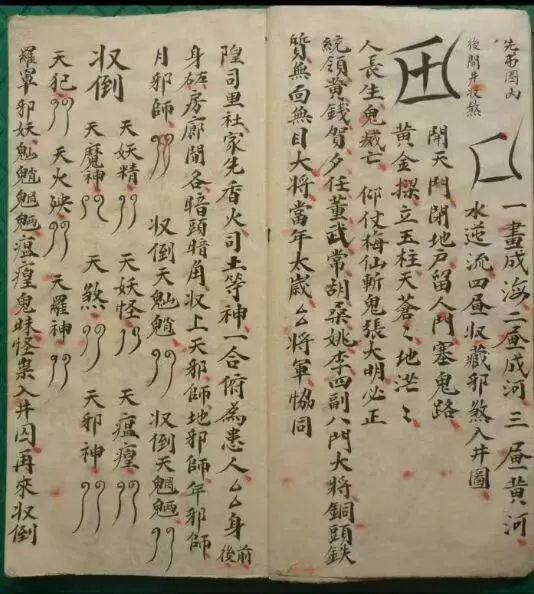 先布圖內
後開井收煞
一畫成海二畫成河三畫黃河
水逆流四畫収藏邪煞入井圖
開天門閉地戶留人門塞鬼路
黃金樑立玉柱天蒼〻地茫〻
人長生鬼滅亡 仰仗梅仙斬鬼張大明必正
統領黃錢賀夕任董武常胡桑姚李四副八門大將銅頭鉄
質無面無目大將當年太歲厶厶將軍協同
隍司里社家先香火司土等神一合俯為患人厶厶身前後
身在房廊閣各暗頭暗角収上天邪師地邪師年邪師
月邪師 収倒天魈 収倒天魍魎
収倒
天妖精 天妖怪 天瘟㾮
天魔神 天煞 天邪神
天犯 天火殃 天羅神
羅罩邪妖魈魍魎瘟㾮鬼昧怪祟入井囚再來収倒